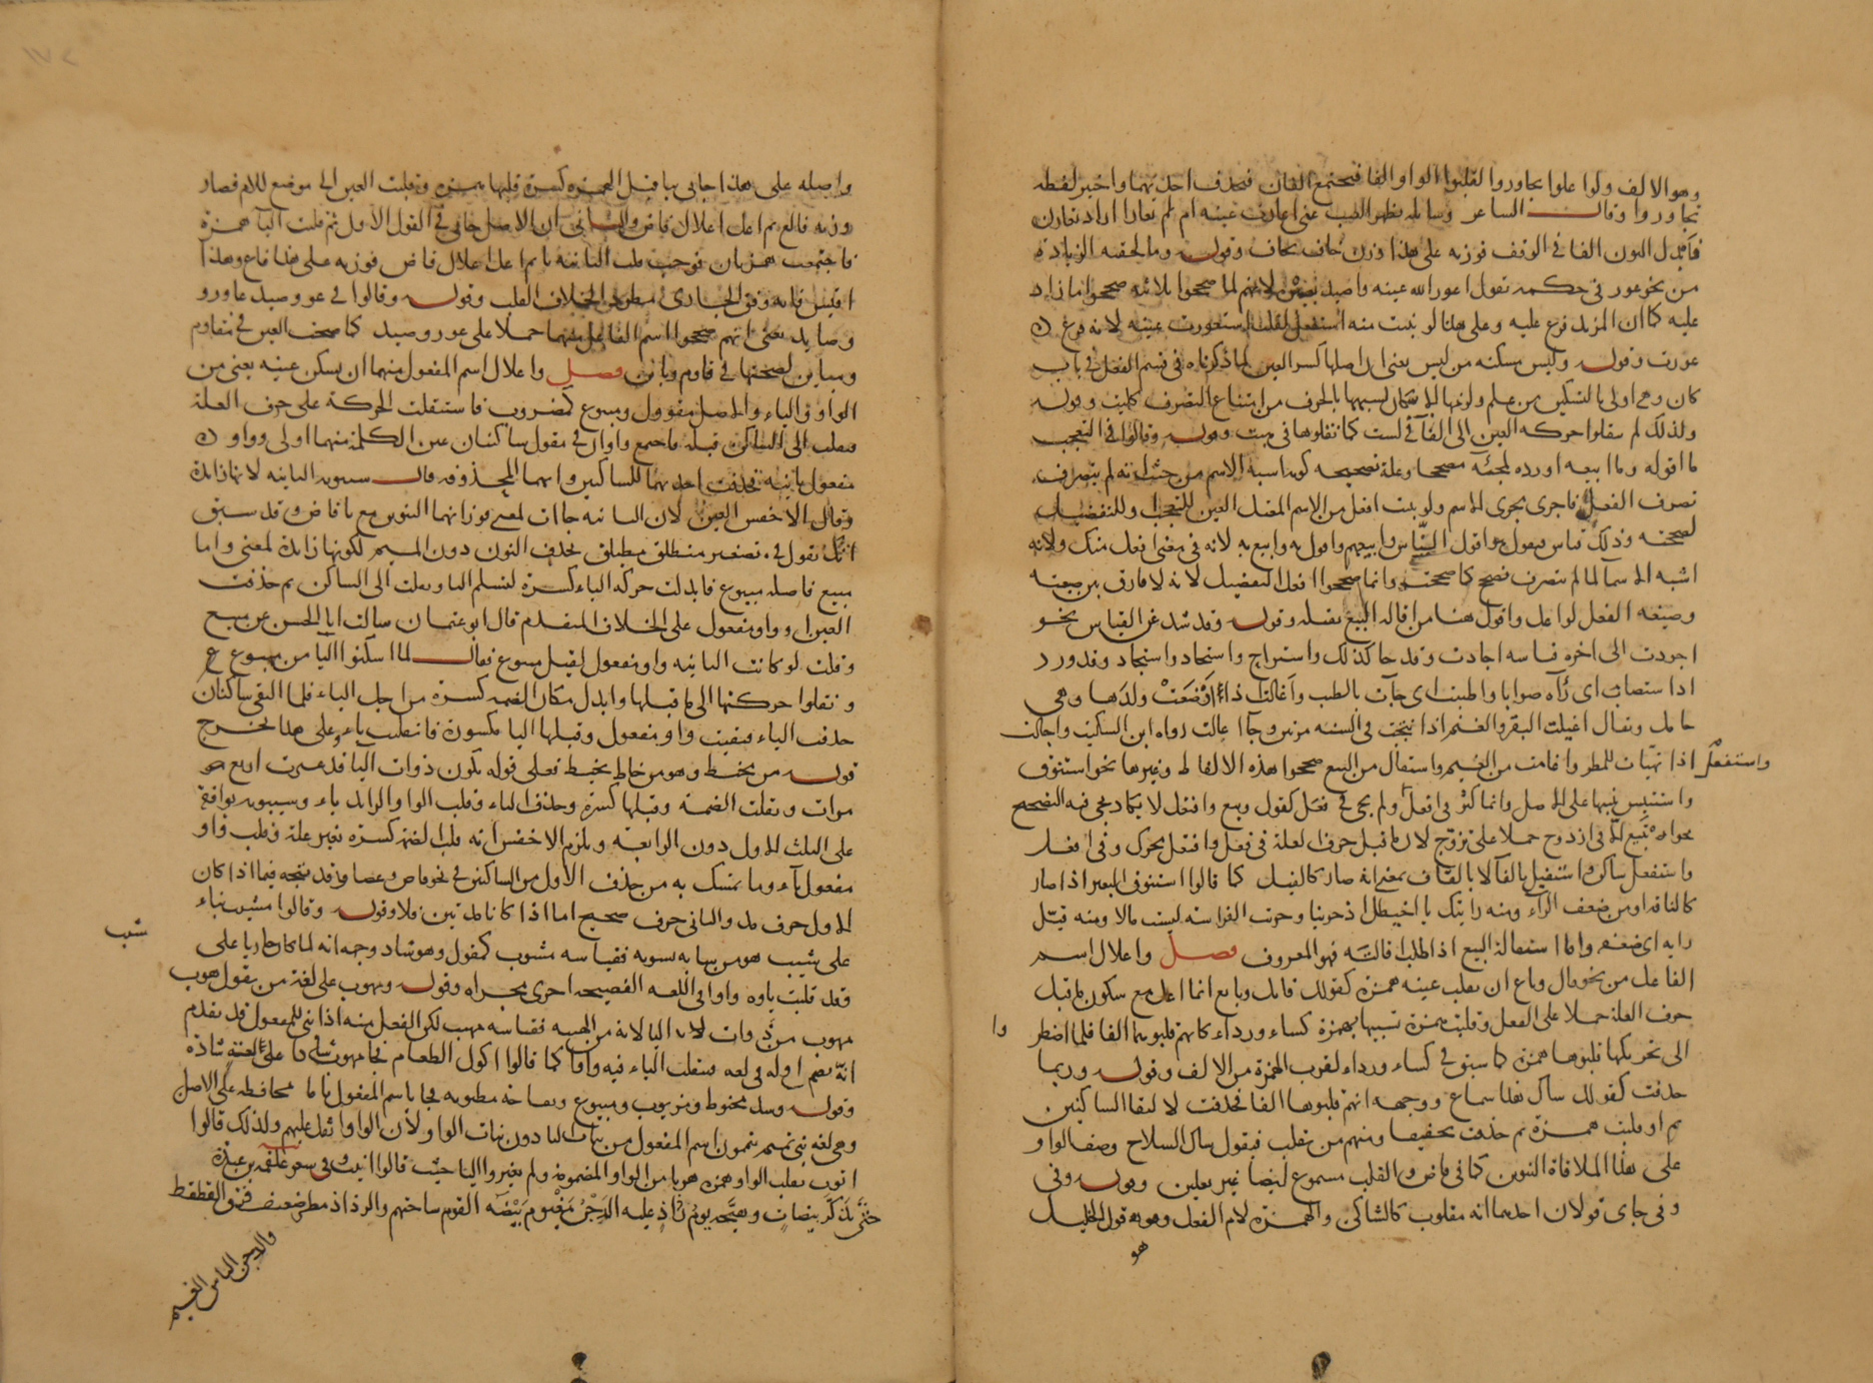 وهو الالف ولو اعلوا تجاوروا لقلبوا الواو الفا فتجتمع الفان فتحذف احديهما واخير لفظه
تجاوروا وقال الساعر وسايله بظهر الغيب عنى اعارت عينه ام لم تعارا اراد تعارن
فابدل النون الفا فى الوقف فوزنه على هذا وزن تخاف تخاف وقوله وما لحقته الزيادة
من نحو عور فى حكمه تقول اعور الله عينه واصيد بعيره لانهم لما صححوا الثلاثى صححوا ما زاد
عليه كما ان المزيد فرع عليه وعلى هذا لو بنيت منه استفعل لقلت استعورت عينه لانه فرع
عورت وقوله وليس مسكنه من ليس يعنى ان اصلها كسر العين لما ذكرناه فى قسم الفعل فى باب
كان وهى اولى بالتسكين من علم ولزمها الاسكان لشبهها بالحرف من امتناع التصرف كليت وقوله
ولذلك لم ينقلوا حركه العين الى الفآ فى لست كما نقلوها فى هبت وقوله وقالوا فى التعجب
ما اقوله وما ابيعه اورده لمجئه مصححا وعلة تصحيحه كونه اشبه الاسم من حيث انه لم يتصرف
تصرف الفعل فاجرى مجرى الاسم ولو بنيت افعل من الاسم المعتل العين للتعجب وللتفضيل
لصححته وذلك قياس فيقول هو اقول الناس وابيعهم واقول به وابيع به لانه فى معنى افعل منك ولانه
اشبه الاسما لما لم يتصرف فصح كما صحت وانما صححوا افعل التفضيل لانه لا فارق بين صيغته
وصيغه الفعل لو اعل واقول هنا من اقاله البيع بقيله وقوله وقد شذ عن القياس نحو
اجودت الى اخره قياسه اجادت وقد جا كذلك واستراح واستحاد واستجاد وقد ورد
اذا استصاب اى رآه صوابا واطيبت اى جآت بالطيب واغالت اذا ارضعت ولدها وهى
حامل ويقال اغيلت البقر والغنم اذا نتجت فى السنه مرتين وجآ اغالت رواه ابن السكيت واخالت
واستفعل
اذا تهيأت للمطر واغامت من الغيم واستفال من الفيل صححوا هذه الالفاظ وغيرها نحو استنوق
واستتيس تنبيها على الاصل وانما كثر فى افعل ولم يجئ فى فعل كقول وبيع وافتعل لا يكاد يجئ فيه التصحيح
واستفعل ساكن واستفيل بالفآ لا بالقاف بمعنى انه صار كالفيل كما قالوا استنوق البعير اذا صار
رايه اى ضعفه واما استقاله البيع اذا طلب اقالته فهو المعروف فصل واعلال اسم
الفاعل من نحو قال وباع ان يقلب عينه همزة كقولك قايل وبايع انما اعل مع سكون ما قبل
حرف العلة حملا على الفعل وقلبت همزة تشبيها بهمزة كساء ورداء كانهم قلبوها الفا فلما اضطر
وا
الى تحريكها قلبوها همزة كما سبق فى كساء ورداء لقرب الهمزة من الالف وقوله وربما
حذفت كقولك شاك بقلب اسماع ووجهه انهم قلبوها الفا فحذفت لالتقا الساكنين
ثم او قلبت همزة ثم حذفت تخفيفا ومنهم من يقلب فيقول شاكى السلاح وصف الواو
على هذا الملاقاة التنوين كما فى قاض والقلب مسموع ايضا غير معلين وقوله وفى
وفى جاى قولان احدهما انه مقلوب كالشاكى والهمزة لام الفعل وهو قول الخليل
هو
واصله على هذا جائى بيا قبل الهمزه كسرة قلبها همزه وقلبت العين الى موضع اللام فصار
وزنه فالع ثم اعل اعلال قاض والثانى ان الاصل جائى فى القول الاول ثم قلبت اليآ همزة
فاجتمعت همزتان فوجب قلب الثانية يا ثم اعل اعلال قاض فوزنه على هذا فاع وهذا
اقيس فانه وفق الجارى مطرد بخلاف القلب وقوله وقالوا فى عور وصيد عاور و
وصايد يعنى انهم صححوا اسم الفاعل منهما حملا على عور وصيد كما صحت العين فى مقاوم
ومباين لصحتها فى قاوم وباين فصل واعلال اسم المفعول منهما ان يسكن عينه يعنى من
الواو والياء والاصل مقوول ومبيوع كمضروب فاستثقلت الحركة على حرف العلة
فنقلت الى الساكن قبله فاجتمع واوان فى مقول ساكنان عين الكلمة منهما اولى وواو
مفعول ثانية فحذفت احديهما للساكنين وايهما المحذوفه قال سيبويه الثانيه لانها زائدة
وقال الاخفش العين لان الثانيه جات لمعنى فوزانهما التنوين مع يا قاض وقد سبق
انك تقول فى تصغير منطلق مطيلق بحذف النون دون الميم لكونها زائدة لمعنى واما
مبيع فاصله مبيوع فابدلت حركه الياء كسرة لتسلم اليا ونقلت الى الساكن ثم حذفت
العين او واو مفعول على الخلاف المتقدم قال ابو عثمان سالت ابا الحسن عن مبيع
وقلت لو كانت الثانيه واو مفعول لقيل مبوع فقال لما اسكنوا اليآ من مبيوع
ونقلوا حركتها الى ما قبلها وابدل مكان الضمه كسرة من اجل الياء فلما التقى ساكنان
حذفت الياء فبقيت واو مفعول وقبلها البا مكسورة فانقلبت ياء وعلى هذا تخرج
قوله من مخيط وهو من خاط يخيط فعلى قوله تكون ذوات اليا قد غيرت اربع
مرات ونقلت الضمة وقبلها كسرة وحذف الياء وقلب الواو الزايد ياء وسيبويه يوافقه
على الثلث الاول دون الرابعة ويلزم الاخفش انه قلب الضمة كسرة بغير علة وقلب واو
مفعول يآء وما تمسك به من حذف الاول من الساكنين فى نحو قاض وعصا وقد يتجه فيما اذا كان
الاول حرف مد والثانى حرف صحيح اما اذا كانا مدتين فلا وقوله وقالوا مشيب بناء
شيب
على شيب هو من شابه يشوبه فقياسه مشوب كمقول وهو شاذ وجهه انه لما كان جاريا على
وقد قلبت ياوه واوا فى اللغه الفصيحه اجرى مجراه وقوله ومهوب على لغة من يقول هوب
مهوب من ذوات الياء لانه من الهيبه فقياسه مهيب لكن الفعل منه اذا بنى للمفعول قد تقدم
انه يضم اوله فى لغه فتنقلب الياء فيه واوا كما قالوا اكول الطعام فجا مهوب على لغة شاذه
وقوله وشذ مخيوط ومزيوت ومبيوع وتفاحة مطيوبه فجا باسم المفعول تاما محافظه على الاصل
وهى لغه بنى تميم يتمون اسم المفعول من بنات اليا دون بنات الواو لان الواو اثقل عليهم ولذلك قالوا
حتى تذكر بيضات وهيجه يوم رذاذ عليه الدجن مغيوم بيضه القوم ساحتهم والرذاذ مطر ضعيف فوق القطقط
والدجن الباس الغيم